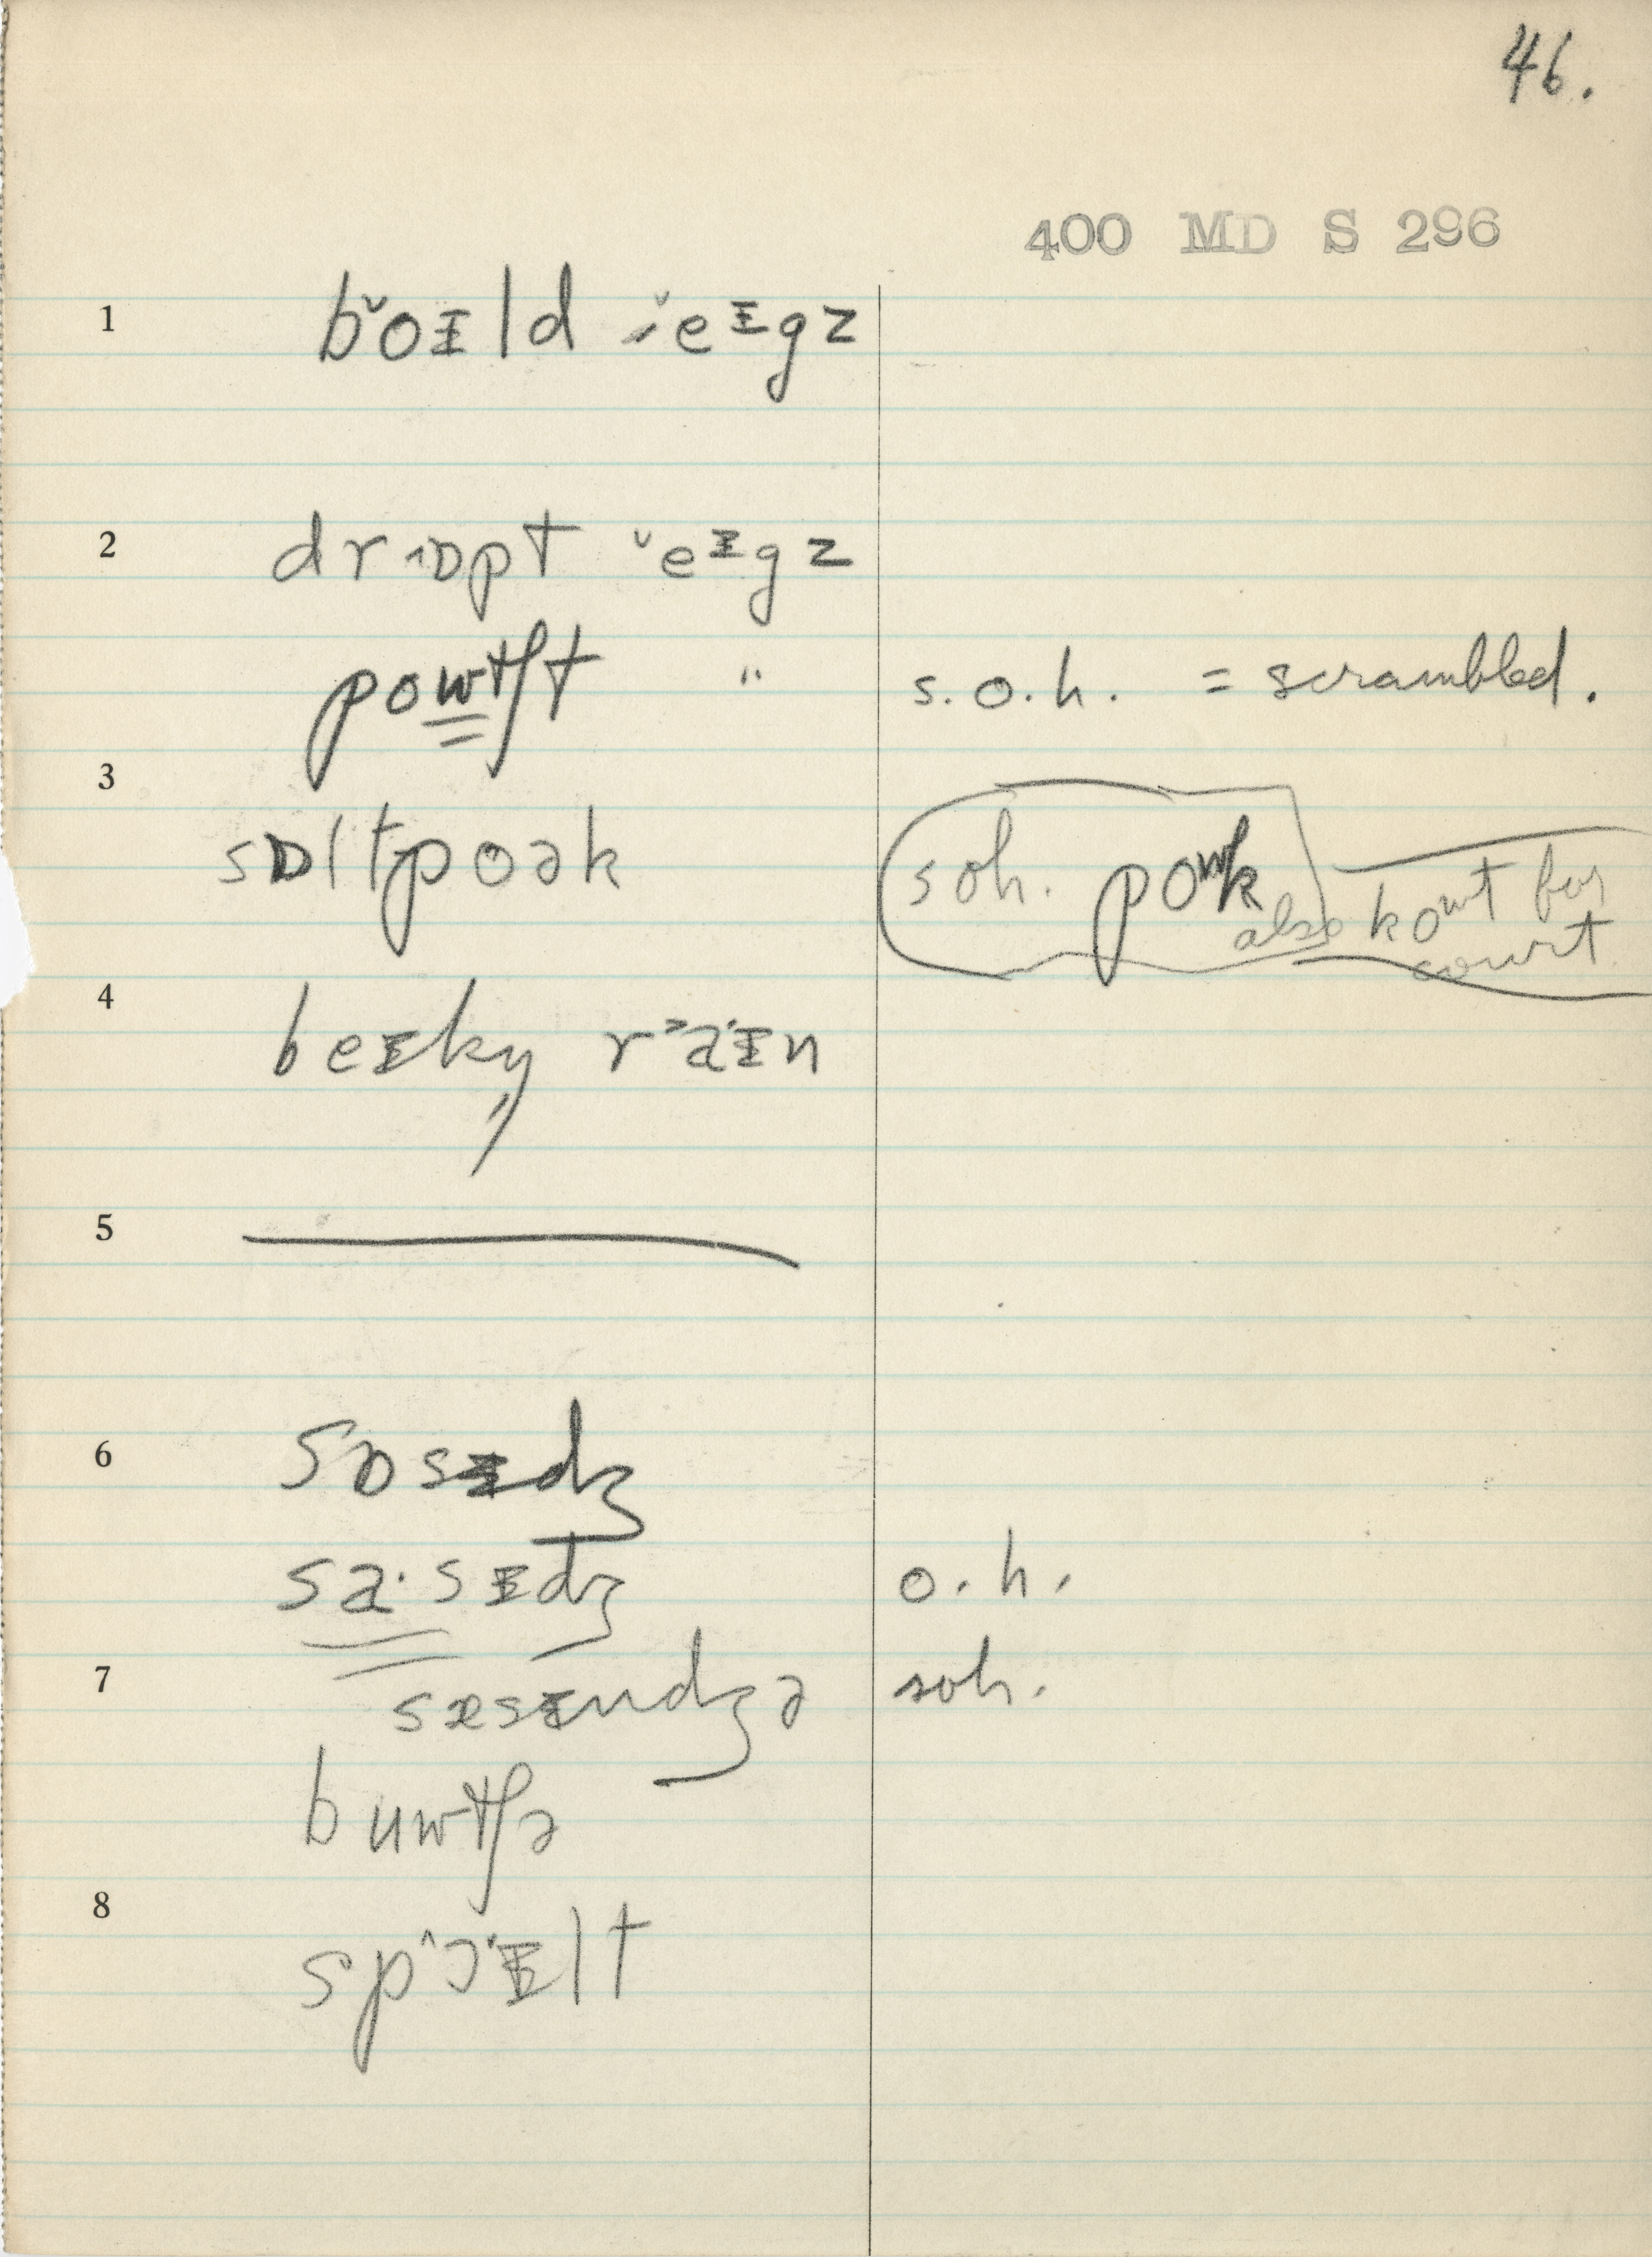 46.
400 MD S 296
1 bˇoɪld ˇeɪgz
2 drɒpt ˇeɪgz
powtʃt " s.o.h. = scrambled.
3
sɒltpoək soh. powk also kowt for court
4 beɪkŋ r˃a·ɪn
5
6 sɒsɪdʒ
sa·sɪdʒ o.h.
7 sæsɪndʒə soh.
buwtʃə
8
sp^ɔ·ɪlt